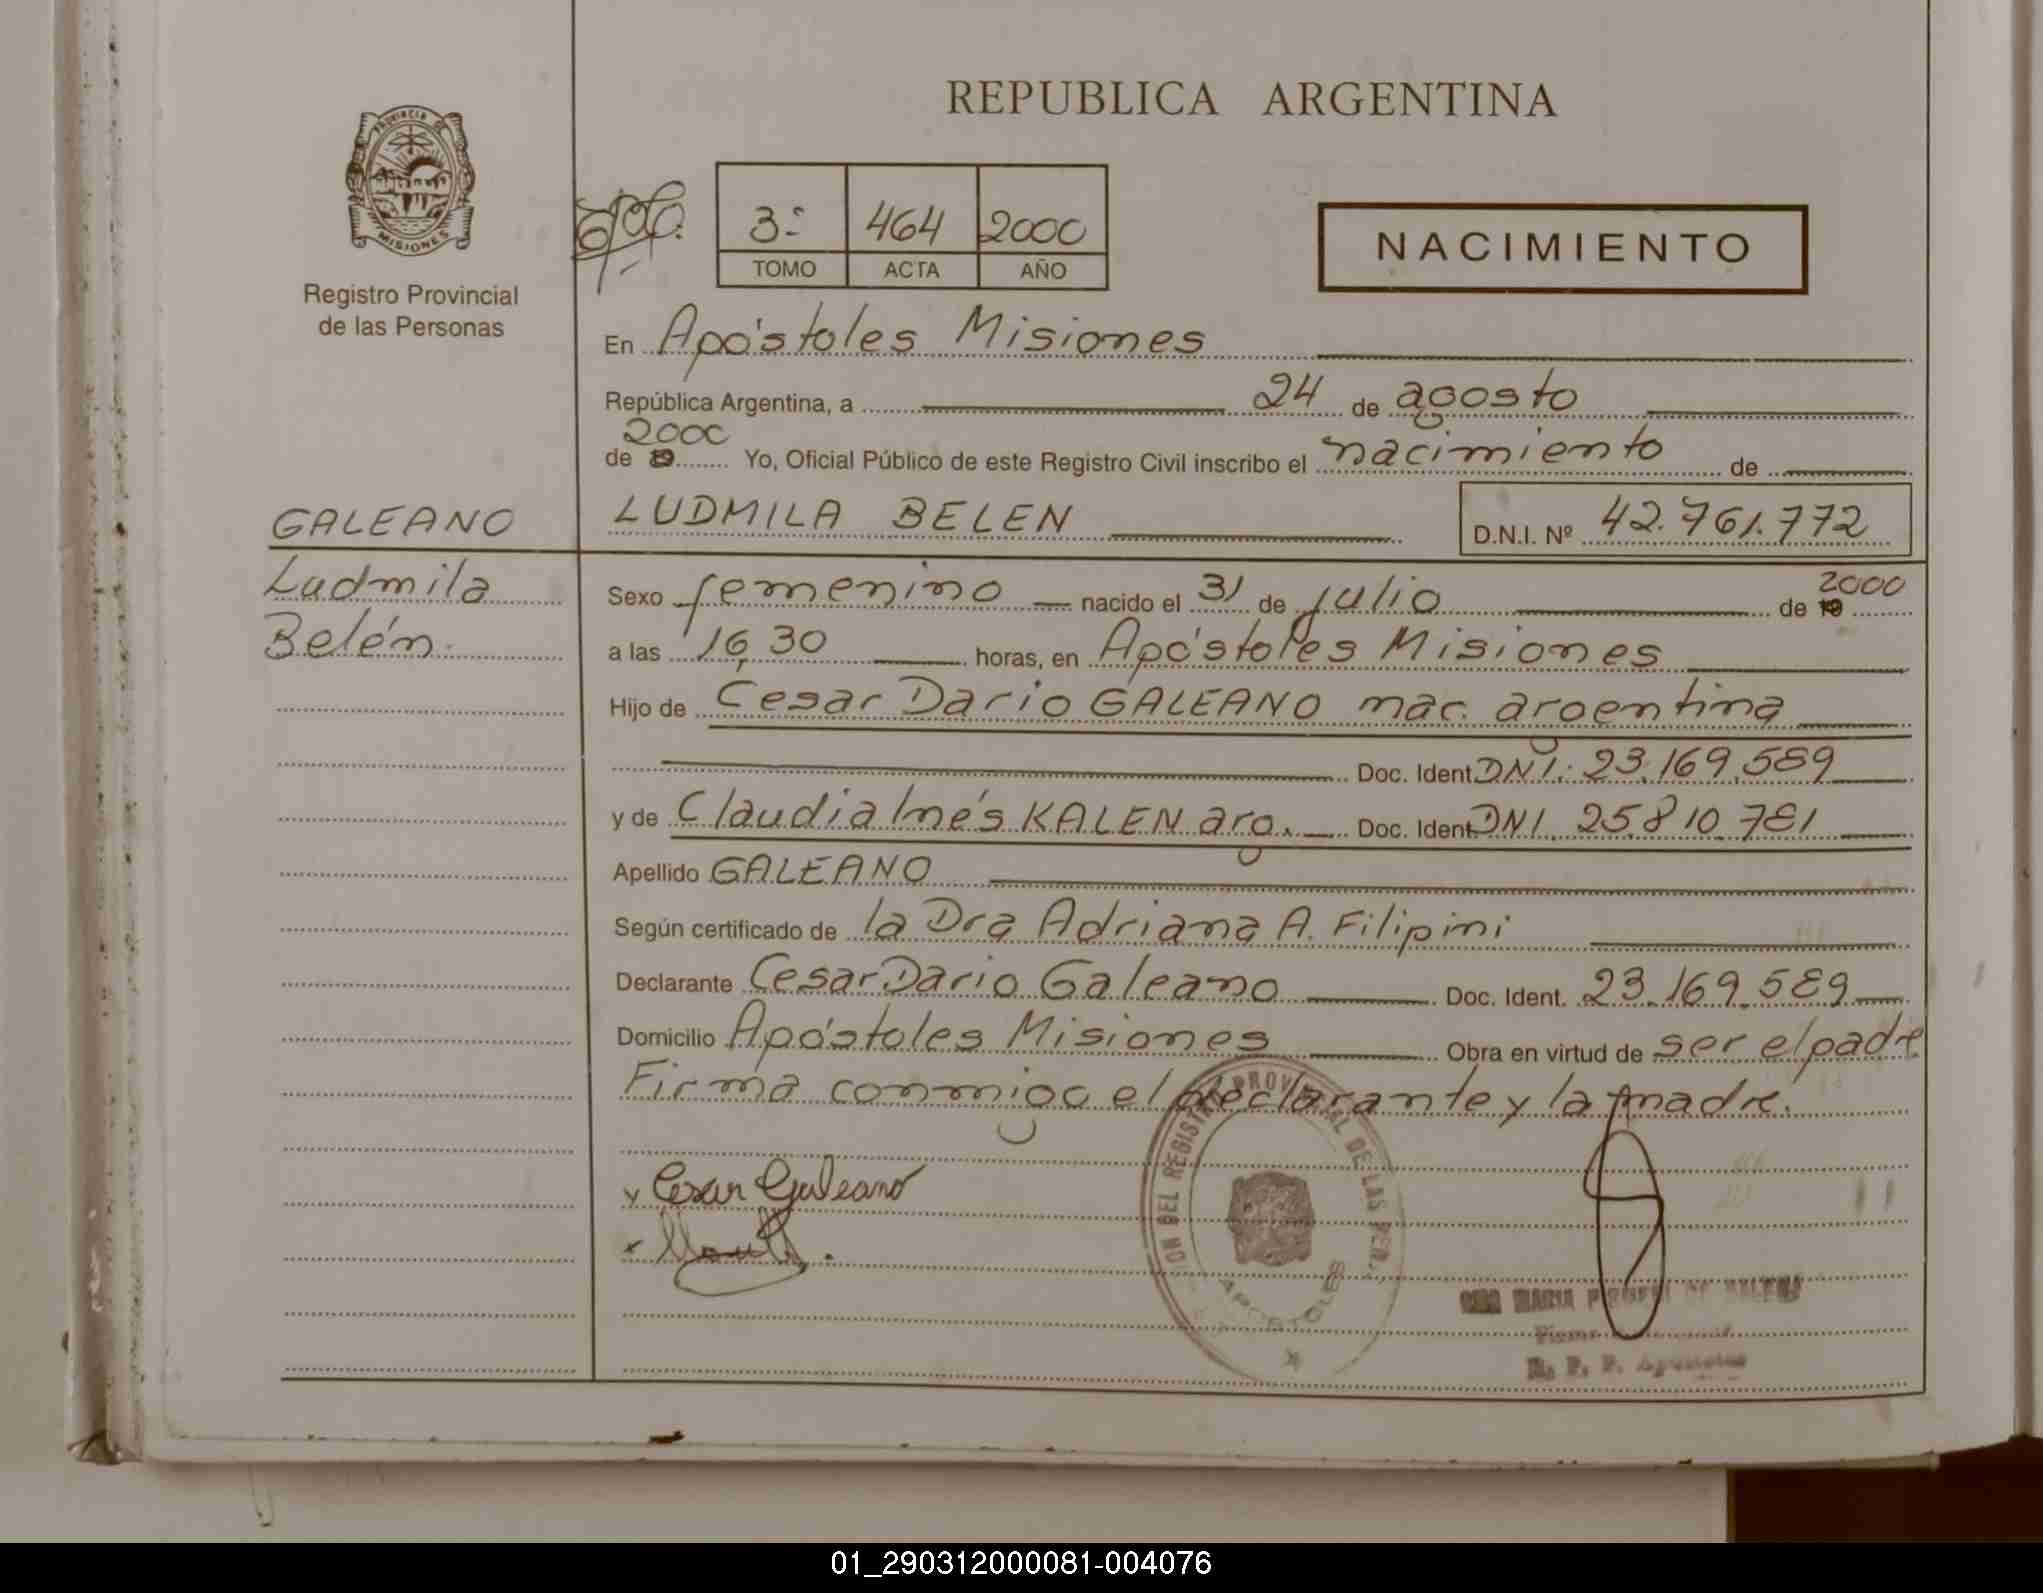 REPUBLICA ARGENTINA
PROVINCIA DE
MISIONES
Registro Provincial
de las Personas
3º 464 2000
TOMO ACTA AÑO
NACIMIENTO
En Apóstoles Misiones
República Argentina, a 24 de agosto
2000
de 19 Yo, Oficial Público de este Registro Civil inscribo el nacimiento de
GALEANO
Ludmila
Belén.
LUDMILA BELEN D.N.I. Nº 42.761.772
Sexo femenino nacido el 31 de julio de 19 2000
a las 16,30 horas, en Apóstoles Misiones
Hijo de Cesar Dario GALEANO nac. argentina
Doc. Ident. DNI. 23.169.589
y de Claudia Inés KALEN arg. Doc. Ident. DNI 25.810.781
Apellido GALEANO
Según certificado de la Dra Adriana A. Filipini
Declarante Cesar Dario Galeano Doc. Ident. 23.169.589
Domicilio Apóstoles Misiones Obra en virtud de ser el padre
Firma conmigo el declarante y la madre.
x Cesar Galeano
REGISTRO PROVINCIAL DE LAS PER.
APOSTOLES
MARIA
R. P. P. Apóstoles
01_290312000081-004076